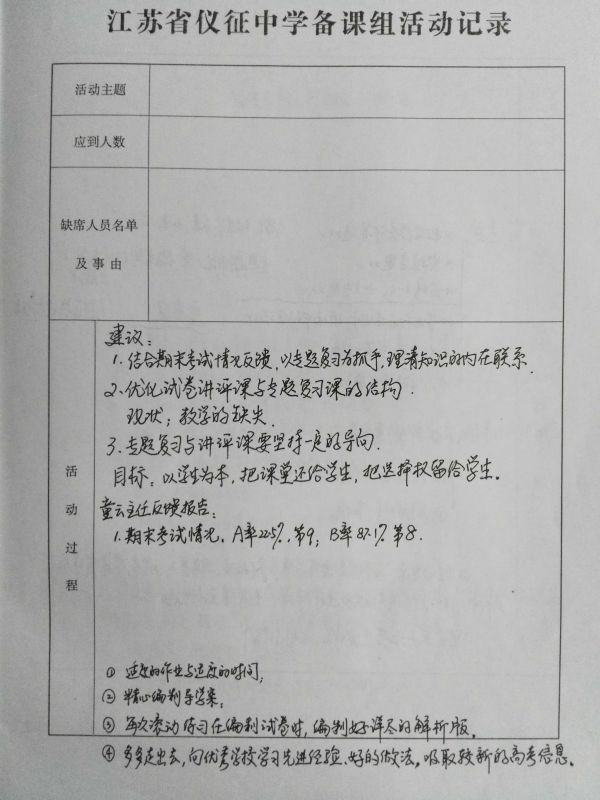 江苏省仪征中学备课组活动记录
活动主题
应到人数
缺席人员名单
及事由
活动过程
建议：
1. 结合期末考试情况反馈，以专题复习为抓手，理清知识的内在联系.
2. 优化试卷讲评课与专题复习课的结构.
现状：教学的缺失
3. 专题复习与讲评课要坚持一定的导向.
目标：以学生为本，把课堂还给学生，把选择权留给学生。
童云主任反馈报告：
1. 期末考试情况，A率22.5%，第9；B率87.1% 第8.
① 适度的作业与适度的时间；
② 精心编制导学案；
③ 每次滚动练习在编制试卷时，编制好详尽的解析版.
④ 多多走出去，向优秀学校学习先进经验、好的做法，吸取较新的高考信息。